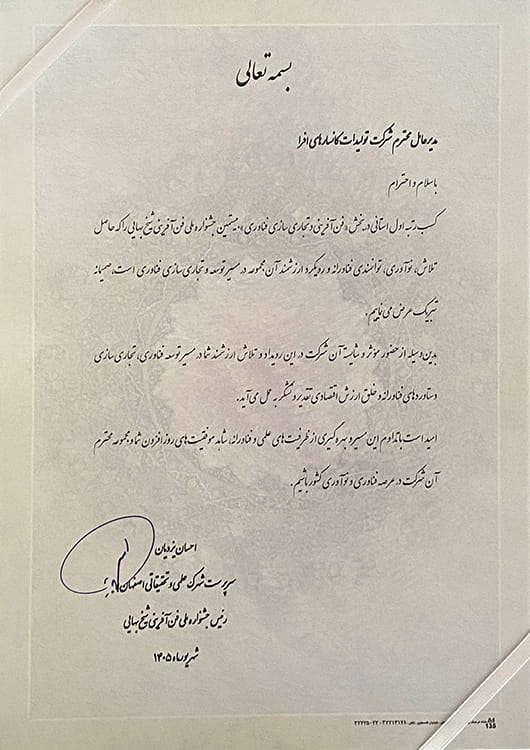 بسمه تعالی
مدیرعامل محترم شرکت تولیدات کانسارهای افرا
با سلام و احترام
کسب رتبه اول استانی در بخش «فن آفرینی و تجاری سازی فناوری»، بیستمین جشنواره ملی فن آفرینی شیخ بهایی را که حاصل
تلاش، نوآوری، توانمندی فناورانه و رویکرد ارزشمند آن مجموعه در مسیر توسعه و تجاری سازی فناوری است، صمیمانه
تبریک عرض می نماییم.
بدین وسیله از حضور مؤثر و شایسته آن شرکت در این رویداد و تلاش ارزشمند شما در مسیر توسعه فناوری، تجاری سازی
دستاوردهای فناورانه و خلق ارزش اقتصادی تقدیر و تشکر به عمل می آید.
امید است با تداوم این مسیر و بهره گیری از ظرفیت های علمی و فناورانه، شاهد موفقیت های روز افزون شما و مجموعه محترم
آن شرکت در عرصه فناوری و نوآوری کشور باشیم.
احسان یزدیان
سرپرست شهرک علمی و تحقیقاتی اصفهان
رئیس جشنواره ملی فن آفرینی شیخ بهایی
شهریورماه ۱۴۰۵
A4
135